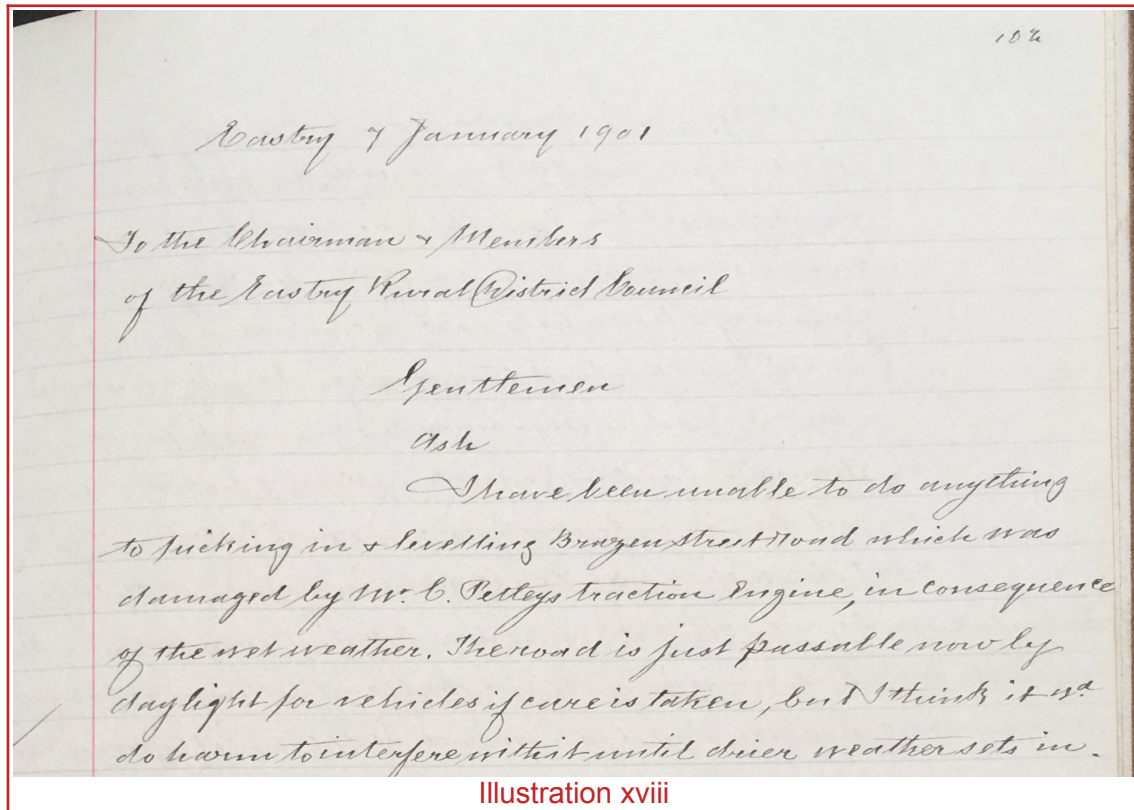 102
Eastry 7 January 1901
To the Chairman & Members
of the Eastry Rural District Council
Gentlemen
Ash
I have been unable to do anything
to picking in & levelling Brazen Street Road which was
damaged by Mr. C. Petleys traction Engine, in consequence
of the wet weather. The road is just passable now by
daylight for vehicles if care is taken, but I think it wd
do harm to interfere with it until drier weather sets in.
Illustration xviii